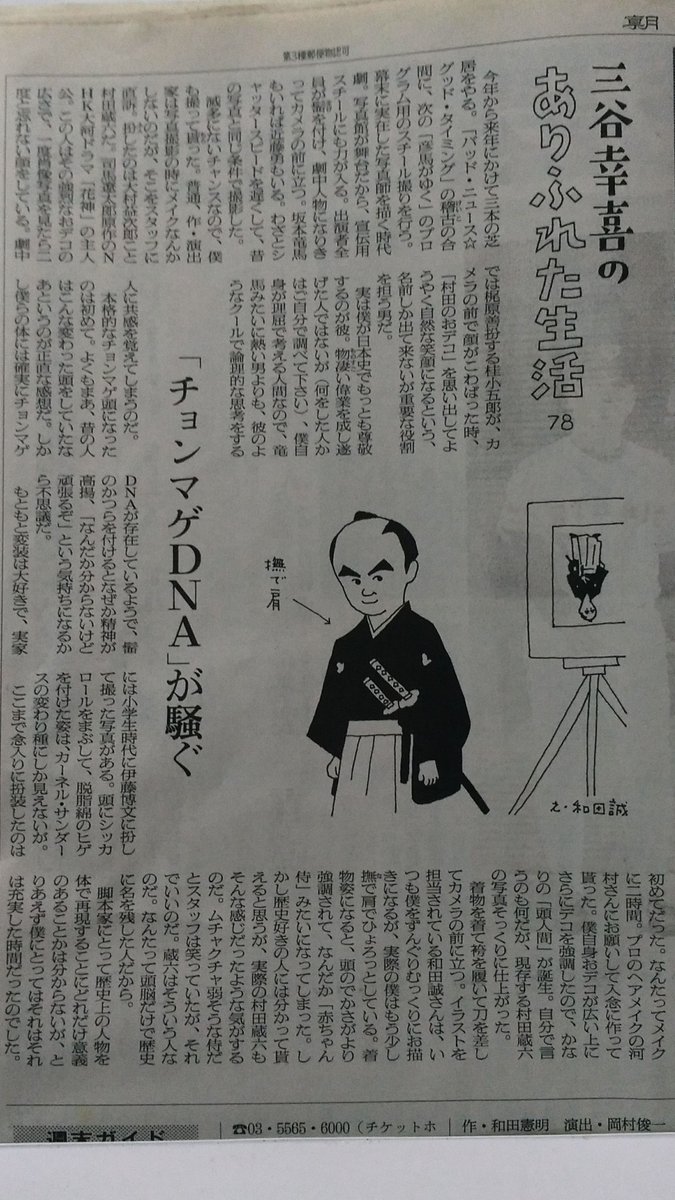 朝
第3種郵便物認可
三谷幸喜の
ありふれた生活
78
今年から来年にかけて三本の芝
居をやる。「バッド・ニュース☆
グッド・タイミング」の稽古の合
間に、次の「彦馬がゆく」のプロ
グラム用のスチール撮りを行う。
幕末に実在した写真師を描く時代
劇。写真館が舞台だから、宣伝用
スチールにも力が入る。出演者全
員が髷を付け、劇中人物になりき
ってカメラの前に立つ。坂本竜馬
もいれば近藤勇もいる。わざとシ
ャッタースピードを遅くして、昔
の写真と同じ条件で撮影した。
滅多にないチャンスなので、僕
も撮って貰った。普通、作・演出
家は写真撮影の時にメイクなんか
しないのだが、そこをスタッフに
直訴。扮したのは大村益次郎こと
村田蔵六だ。司馬遼太郎原作のN
HK大河ドラマ「花神」の主人
公。この人はその強烈なおデコの
広さで、一度肖像写真を見たら二
度と忘れない顔をしている。劇中
では梶原善扮する桂小五郎が、カ
メラの前で顔がこわばった時、
「村田のおデコ」を思い出してよ
うやく自然な笑顔になるという、
名前しか出て来ないが重要な役割
を担う男だ。
実は僕が日本史でもっとも尊敬
するのが彼。物凄い偉業を成し遂
げた人ではないが（何をした人か
はご自分で調べて下さい）、僕自
身が理屈で考える人間なので、竜
馬みたいに熱い男よりも、彼のよ
うなクールで論理的な思考をする
人に共感を覚えてしまうのだ。
本格的なチョンマゲ頭になった
のは初めて。よくもまあ、昔の人
はこんな変わった頭をしていたな
あというのが正直な感想だ。しか
し僕らの体には確実にチョンマゲ
「チョンマゲDNA」が騒ぐ
DNAが存在しているようで、髷
のかつらを付けるとなぜか精神が
高揚、「なんだか分からないけど
頑張るぞ」という気持ちになるか
ら不思議だ。
もともと変装は大好きで、実家
には小学生時代に伊藤博文に扮し
て撮った写真がある。頭にシッカ
ロールをまぶして、脱脂綿のヒゲ
を付けた姿は、カーネル・サンダー
スの変わり種にしか見えないが。
ここまで念入りに扮装したのは
撫で肩
え・和田誠
初めてだった。なんたってメイク
に二時間。プロのヘアメイクの河
村さんにお願いして入念に作って
貰った。僕自身おデコが広い上に
さらにデコを強調したので、かな
りの「頭人間」が誕生。自分で言
うのも何だが、現存する村田蔵六
の写真そっくりに仕上がった。
着物を着て袴を履いて刀を差し
てカメラの前に立つ。イラストを
担当されている和田誠さんは、い
つも僕をずんぐりむっくりにお描
きになるが、実際の僕はもう少し
撫で肩でひょろっとしている。着
物姿になると、頭のでかさがより
強調されて、なんだか「赤ちゃん
侍」みたいになってしまった。し
かし歴史好きの人には分かって貰
えると思うが、実際の村田蔵六も
そんな感じだったような気がする
のだ。ムチャクチャ弱そうな侍だ
とスタッフは笑っていたが、それ
でいいのだ。蔵六はそういう人な
のだ。なんたって頭脳だけで歴史
に名を残した人だから。
脚本家にとって歴史上の人物を
体で再現することにどれだけ意義
のあることかは分からないが、と
りあえず僕にとってはそれはそれ
は充実した時間だったのでした。
週末ガイド
☎03・5565・6000（チケットホ
作・和田憲明　演出・岡村俊一